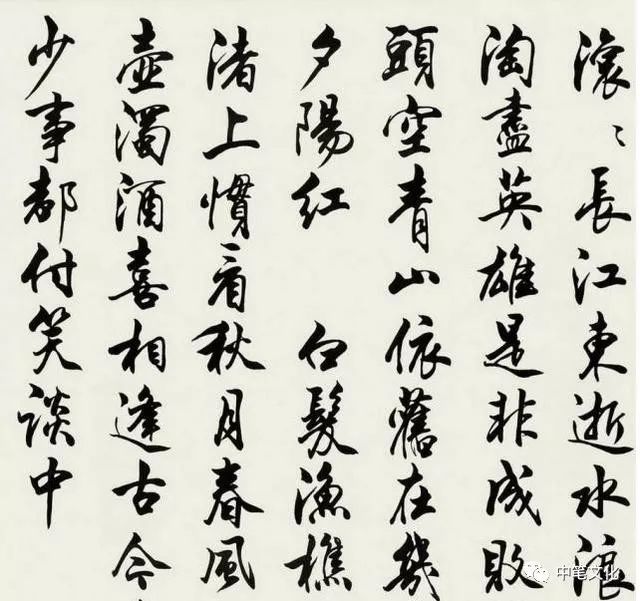 滾〻長江東逝水浪
淘盡英雄是非成敗
頭空青山依舊在幾
夕陽紅 白髮漁樵
渚上慣看秋月春風
壺濁酒喜相逢古今
少事都付笑談中
中笔文化